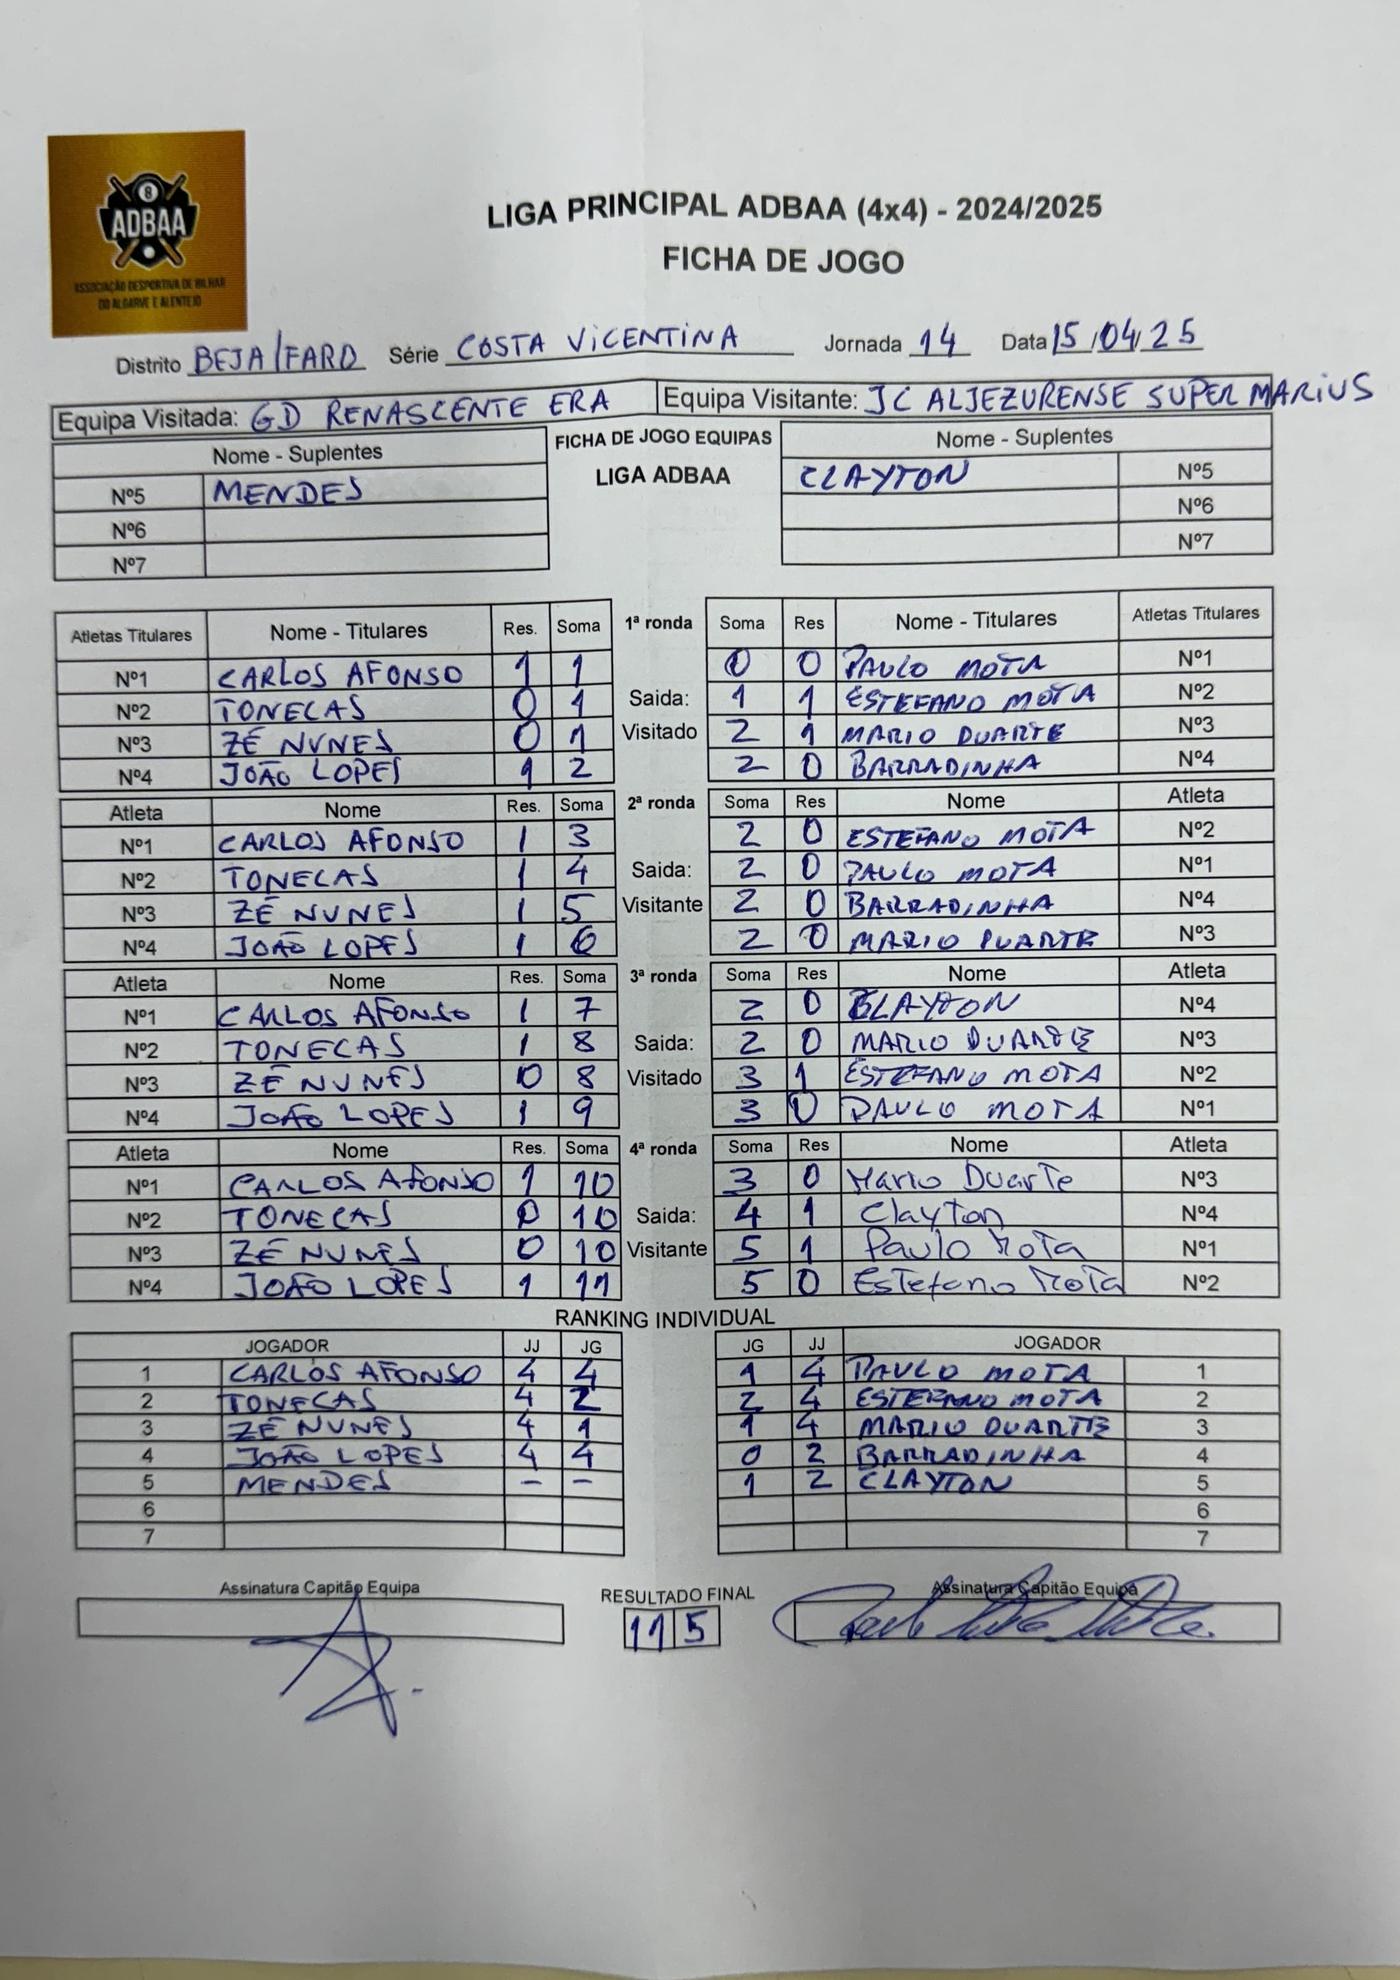 8
ADBAA
ASSOCIAÇÃO DESPORTIVA DE BILHAR
DO ALGARVE E ALENTEJO
LIGA PRINCIPAL ADBAA (4x4) - 2024/2025
FICHA DE JOGO
Distrito BEJA/FARO Série COSTA VICENTINA Jornada 14 Data 15/04/25
Equipa Visitada: GD RENASCENTE ERA Equipa Visitante: JC ALJEZURENSE SUPER MARIUS
Nome - Suplentes FICHA DE JOGO EQUIPAS Nome - Suplentes
Nº5 MENDES LIGA ADBAA CLAYTON Nº5
Nº6 Nº6
Nº7 Nº7
Atletas Titulares Nome - Titulares Res. Soma 1ª ronda Soma Res Nome - Titulares Atletas Titulares
Nº1 CARLOS AFONSO 1 1 0 0 PAULO MOTA Nº1
Nº2 TONECAS 0 1 Saida: 1 1 ESTEFANO MOTA Nº2
Nº3 ZÉ NUNES 0 1 Visitado 2 1 MARIO DUARTE Nº3
Nº4 JOÃO LOPES 1 2 2 0 BARRADINHA Nº4
Atleta Nome Res. Soma 2ª ronda Soma Res Nome Atleta
Nº1 CARLOS AFONSO 1 3 2 0 ESTEFANO MOTA Nº2
Nº2 TONECAS 1 4 Saida: 2 0 PAULO MOTA Nº1
Nº3 ZÉ NUNES 1 5 Visitante 2 0 BARRADINHA Nº4
Nº4 JOÃO LOPES 1 6 2 0 MARIO DUARTE Nº3
Atleta Nome Res. Soma 3ª ronda Soma Res Nome Atleta
Nº1 CARLOS AFONSO 1 7 2 0 CLAYTON Nº4
Nº2 TONECAS 1 8 Saida: 2 0 MARIO DUARTE Nº3
Nº3 ZÉ NUNES 0 8 Visitado 3 1 ESTEFANO MOTA Nº2
Nº4 JOÃO LOPES 1 9 3 0 PAULO MOTA Nº1
Atleta Nome Res. Soma 4ª ronda Soma Res Nome Atleta
Nº1 CARLOS AFONSO 1 10 3 0 Mario Duarte Nº3
Nº2 TONECAS 0 10 Saida: 4 1 Clayton Nº4
Nº3 ZÉ NUNES 0 10 Visitante 5 1 Paulo Mota Nº1
Nº4 JOÃO LOPES 1 11 5 0 Estefano Mota Nº2
RANKING INDIVIDUAL
JOGADOR JJ JG JG JJ JOGADOR
1 CARLOS AFONSO 4 4 1 4 PAULO MOTA 1
2 TONECAS 4 2 2 4 ESTEFANO MOTA 2
3 ZÉ NUNES 4 1 1 4 MARIO DUARTE 3
4 JOÃO LOPES 4 4 0 2 BARRADINHA 4
5 MENDES - - 1 2 CLAYTON 5
6 6
7 7
Assinatura Capitão Equipa RESULTADO FINAL Assinatura Capitão Equipa
11 5